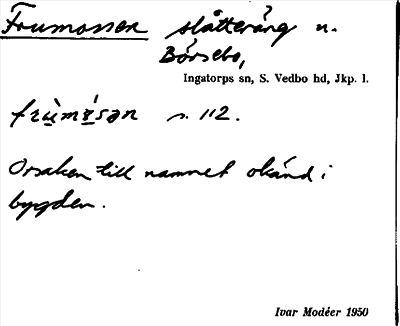 Frumossen slåtteräng n.
Börsebo,
Ingatorps sn, S. Vedbo hd, Jkp. l.
s. 112.
Orsaken till namnet okänd i
bygden.
Ivar Modéer 1950